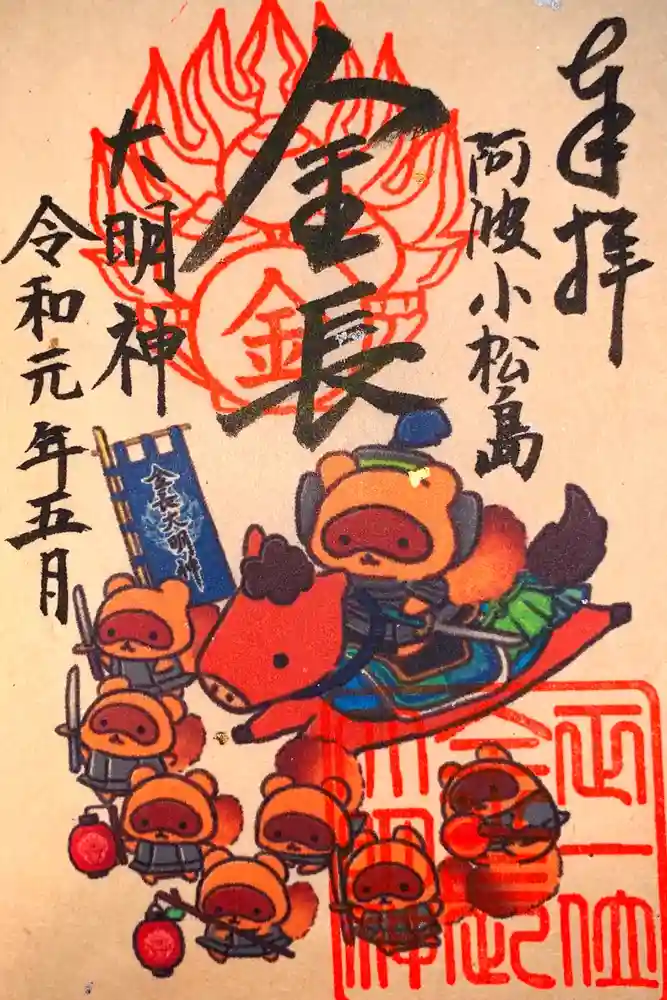 奉拝
阿波小松島
金長
大明神
令和元年五月
金
金長大明神
正一位
金長
大明神